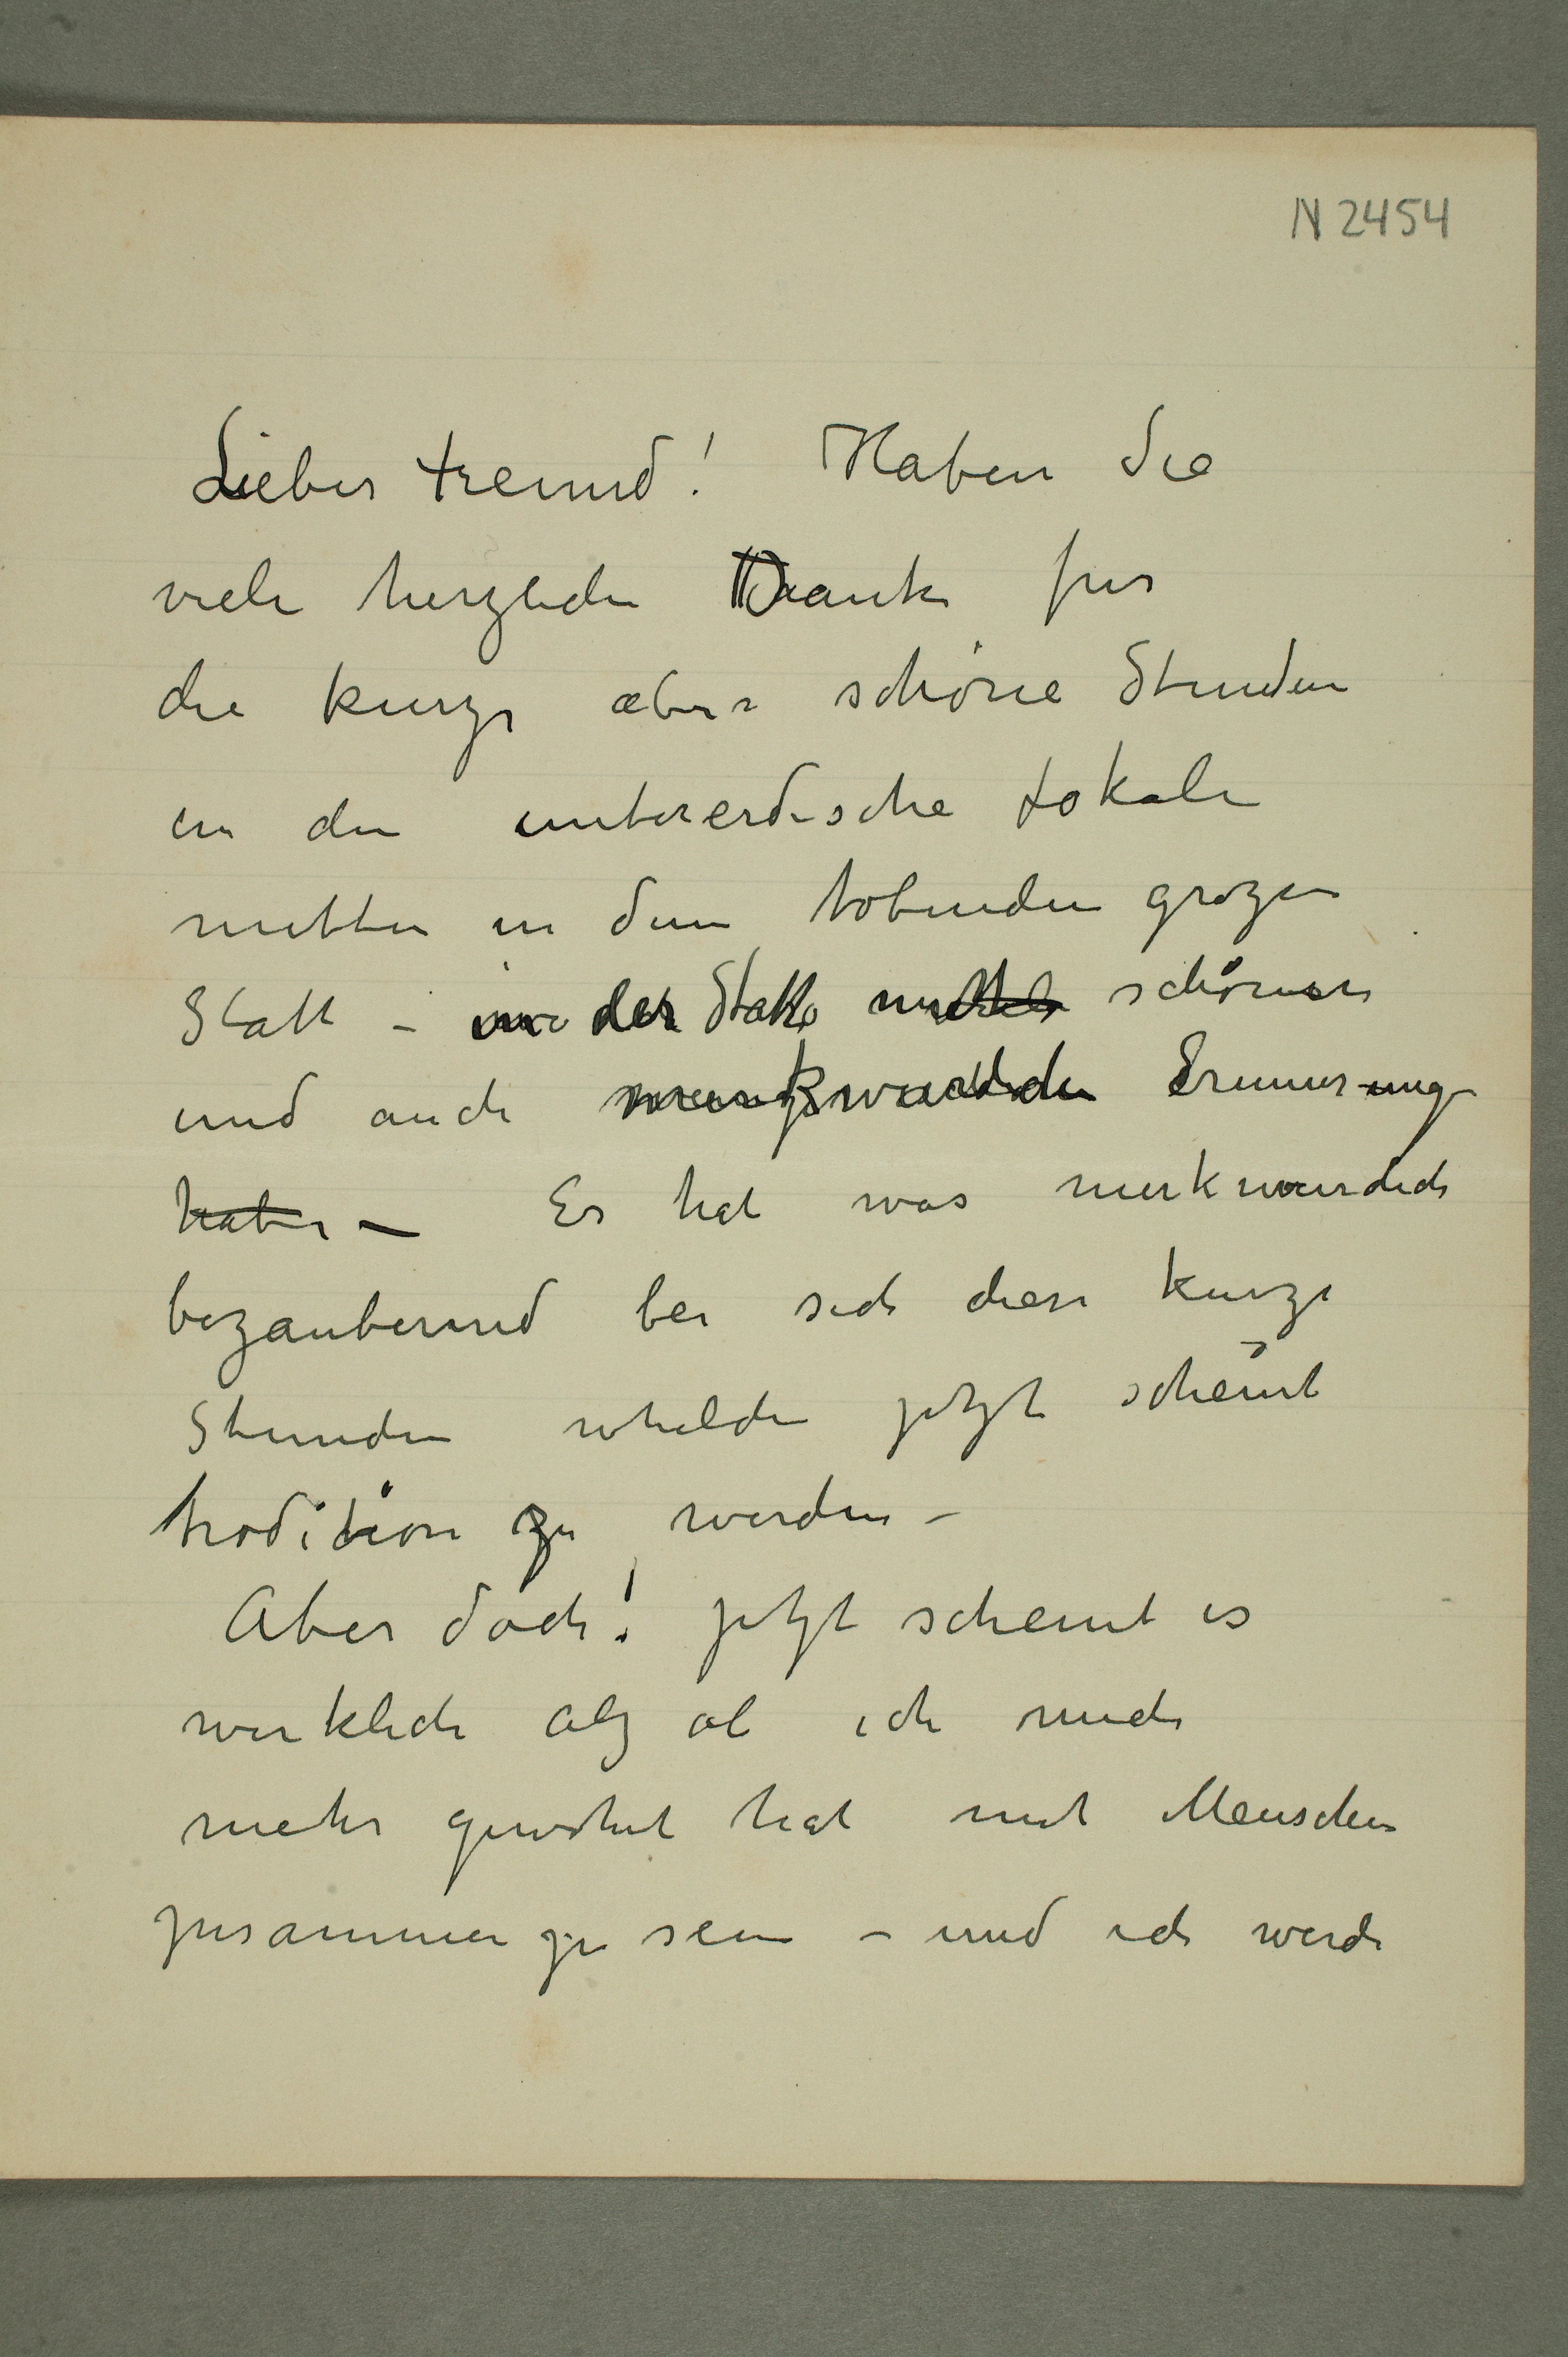 N 2454
Lieber Freund! Haben Sie
viele herzliche Danke fur
die kurze aber schöne Stunden
in die untererdische Lokale
mitten in dem tobenden grozen
Statt – in der Statt schönen
und auch Erinnerung
haben – Es hat was merkwurdich
bezaubernd bei sich diese kurze
Stunden whelche jetzt scheint
tradition zu werden –
Aber doch! jetzt scheint es
wirklich alz ob ich mich
mehr gewohnt hat mit Menschen
zusammen zu sein – und ich werde